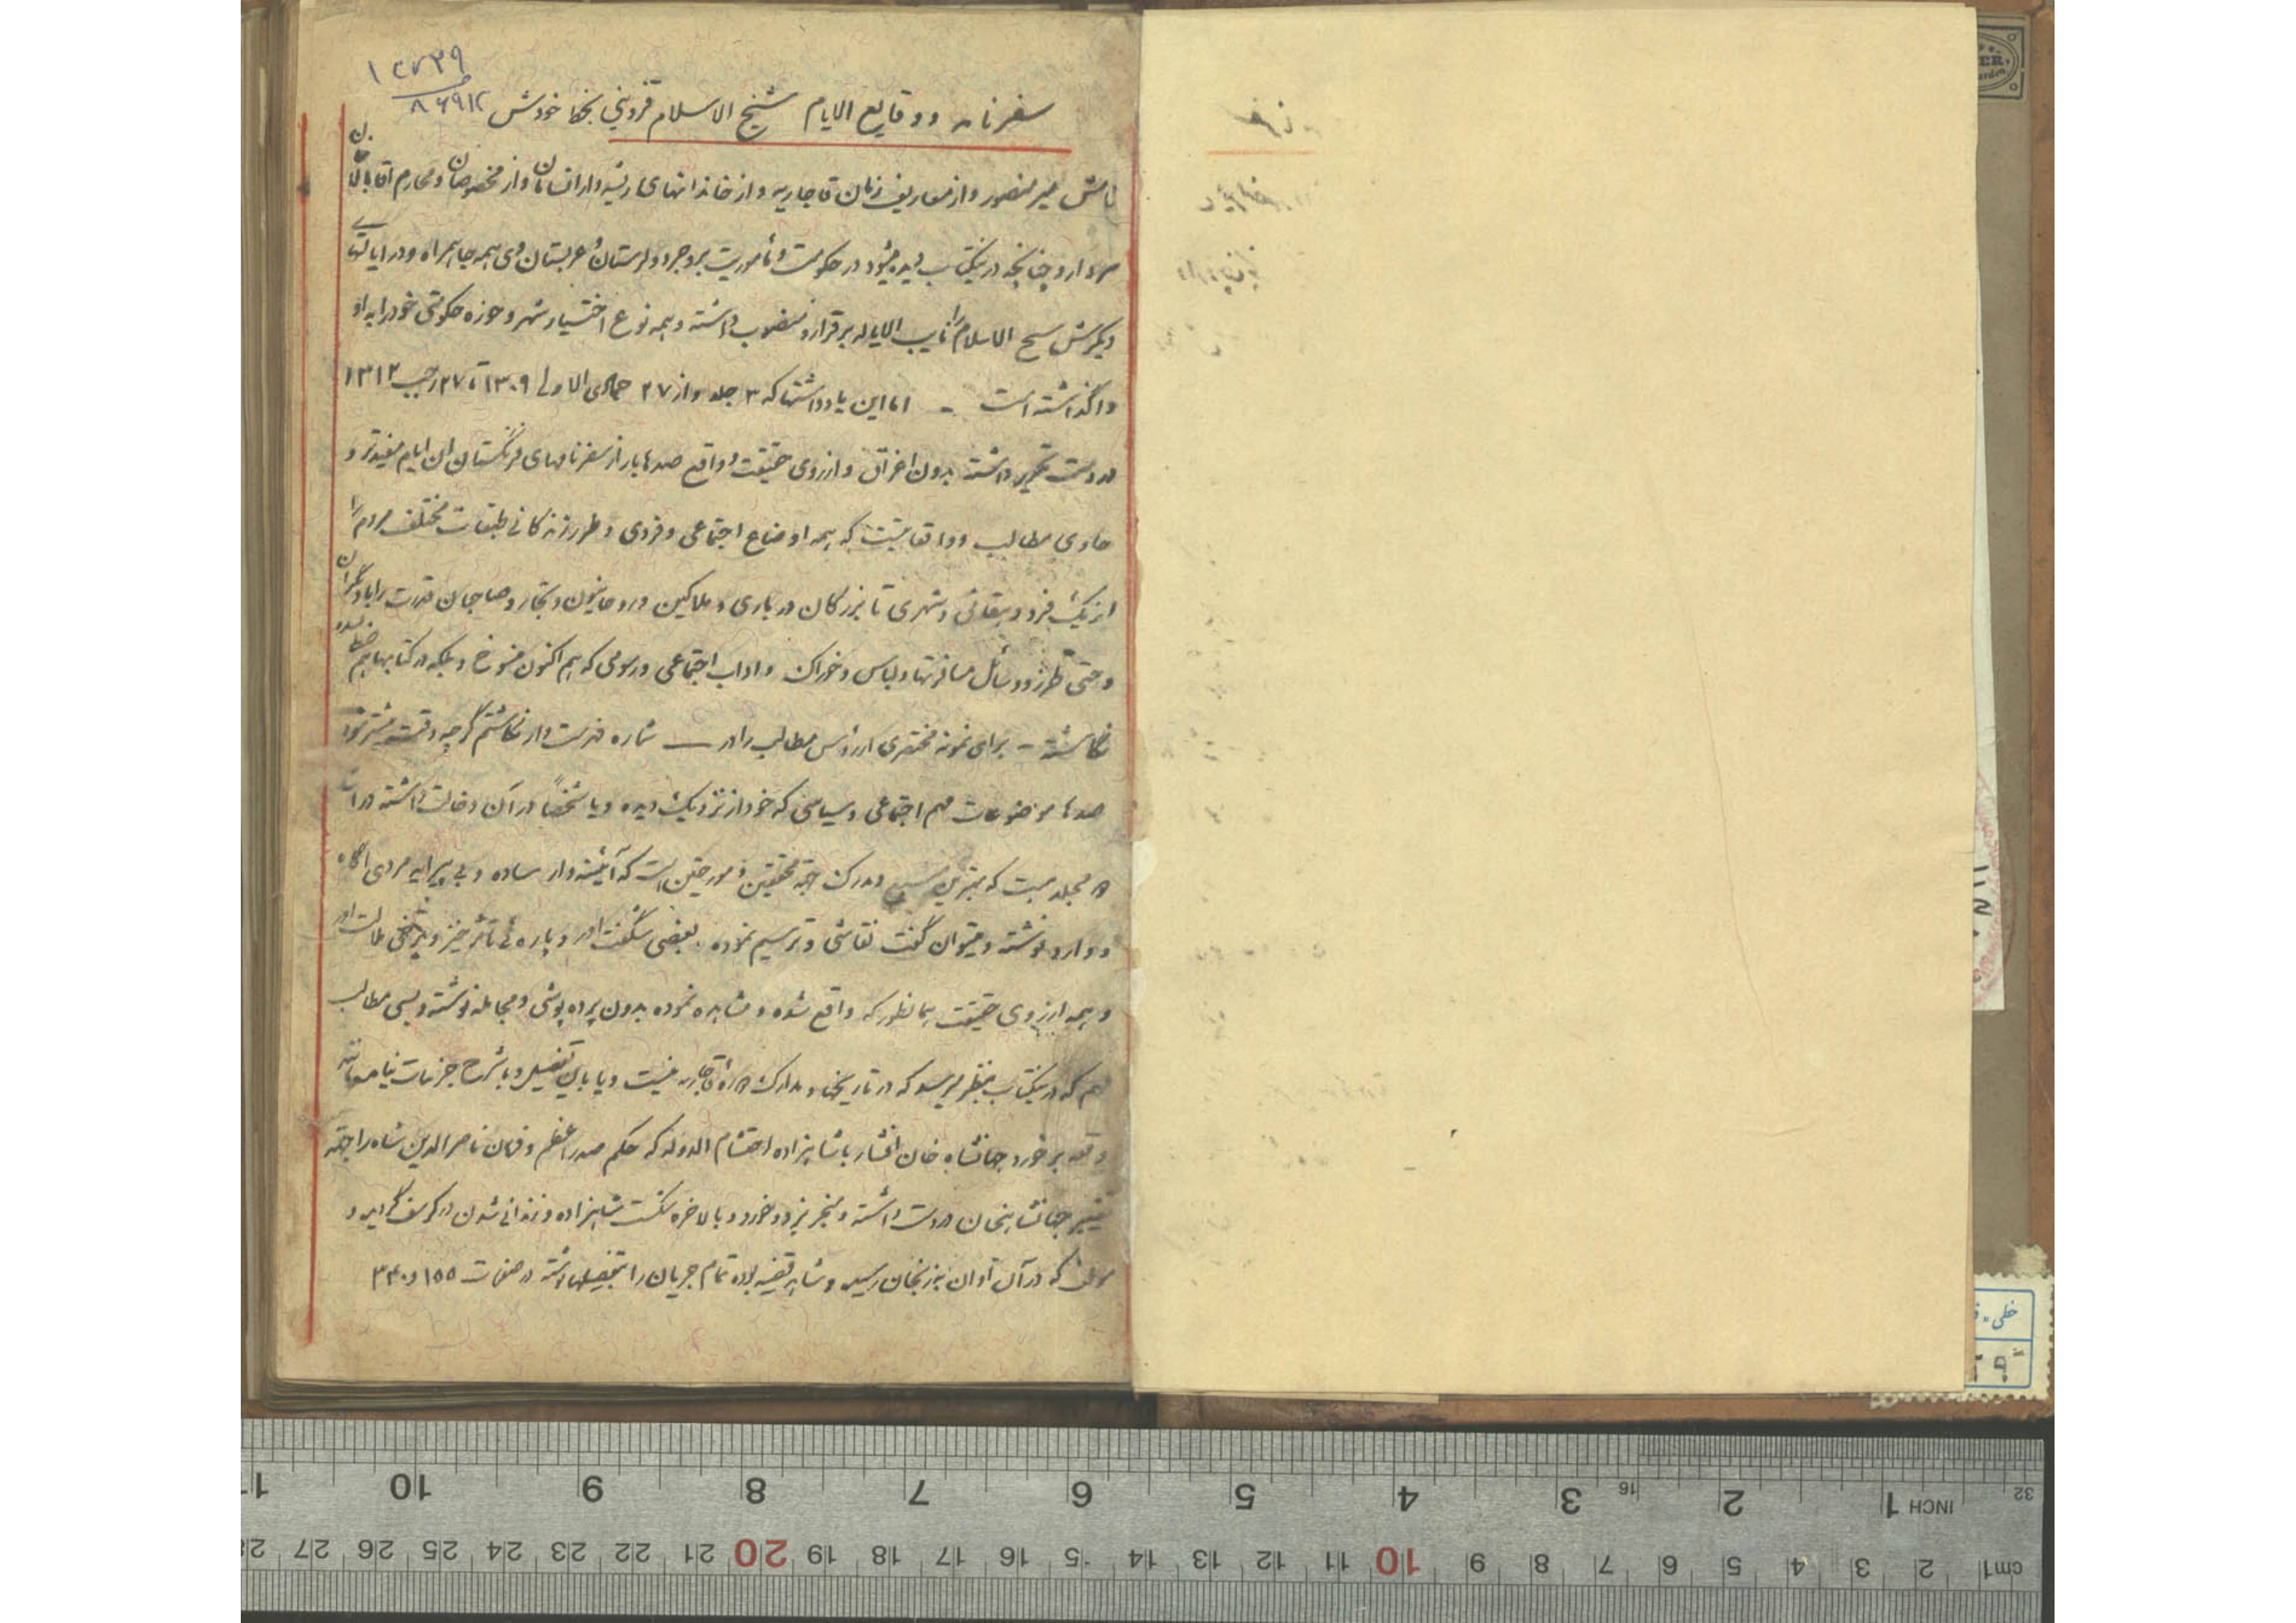 ۱۴۷۳۹
۸۶۹۱۲
سفرنامه و وقایع الایام شیخ الاسلام قزوینی بخط خودش
نامش میر منصور و از معاریف زمان قاجاریه و از خاندانهای ریشه دار انسامان و از مخصوصان و محارم اقا بالاخان
سردار و چنانچه در یکتاب دیده میشود در حکومت و مأموریت بروجرد و لرستان و عربستان وی همه جا همراه و در ایالتهای
دیگرش شیخ الاسلام را نایب الایاله برقرار و منصوب داشته و همه نوع اختیار شهر و حوزه حکومتی خود را به او
واگذاشته است - اما این یادداشتها که ۳ جلد و از ۲۷ جمادی الاولی ۱۳۰۹ تا ۲۷ رجب ۱۳۱۲
در دست تحریر داشته بدون اغراق و از روی حقیقت و واقع صدها بار از سفرنامهای فرنگستان این ایام مفیدتر و
حاوی مطالب و واقعاتیست که همه اوضاع اجتماعی و فردی و طرز زندگانی طبقات مختلف مردم را
از یک فرد دهقانی و شهری تا بزرگان درباری و ملاکین و روحانیون و تجار و صاحبان قدرت را با دیگران
و حتی طرز و وسائل مسافرتها و لباس و خوراک و اداب اجتماعی و رسومی که هم اکنون منسوخ و بلکه در کتابها هم ضبط نشده
نگاشته - برای نمونه مختصری از رؤس مطالب را در — شماره فهرست وار نگاشتم گرچه وقت بیشتر
صدها موضوعات مهم اجتماعی و سیاسی که خود از نزدیک دیده و یا شخصاً در آن دخالت داشته در این
مجلد هست که بهترین و مدرک جهة محققین و مورخین است که آئینه وار ساده و بی پیرایه مردی اگاه
و وارد نوشته و میتوان گفت نقاشی و ترسیم نموده بعضی شگفت اور و پاره ئی تأثر خیز و برخی ملالت اور
و همه از روی حقیقت همانطور که واقع شده و مشاهده نموده بدون پرده پوشی و مجامله نوشته و بسی مطالب
هم که در یکتاب بنظر میرسد که در تاریخها و مدارک دوره قاجاریه نیست و یا باین تفصیل و با شرح جزئیات نیامده مانند
واقعه برخورد جهانشاه خان افشار با شاهزاده احتشام الدوله که حکم صدر اعظم و فرمان ناصرالدین شاه را جهة
تغییر جهانشاهخان در دست داشته و منجر بزد و خورد و بالاخره شکست شاهزاده و زندانی شدن در کرسف گردید و
مولف که در آن آوان بزنجان رسید و شاهد قضیه بوده تمام جریان را بتفصیل نگاشته در صفحات ۱۵۵ و ۳۳۰